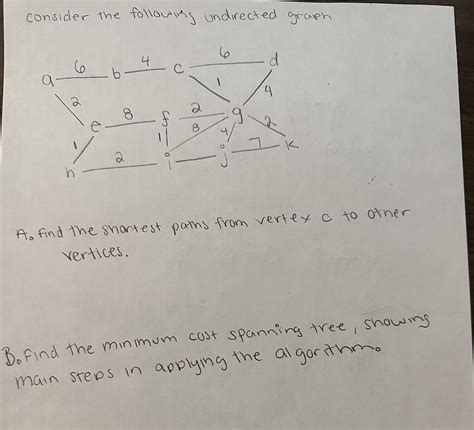 Consider the following undirected graph
6
4
6
a b c d
2 1 4
e 8 f 2 g
1 1 8 4 2
h 2 i j 7 k
A. Find the shortest paths from vertex c to other
vertices.
B. Find the minimum cost spanning tree, showing
main steps in applying the algorithm.